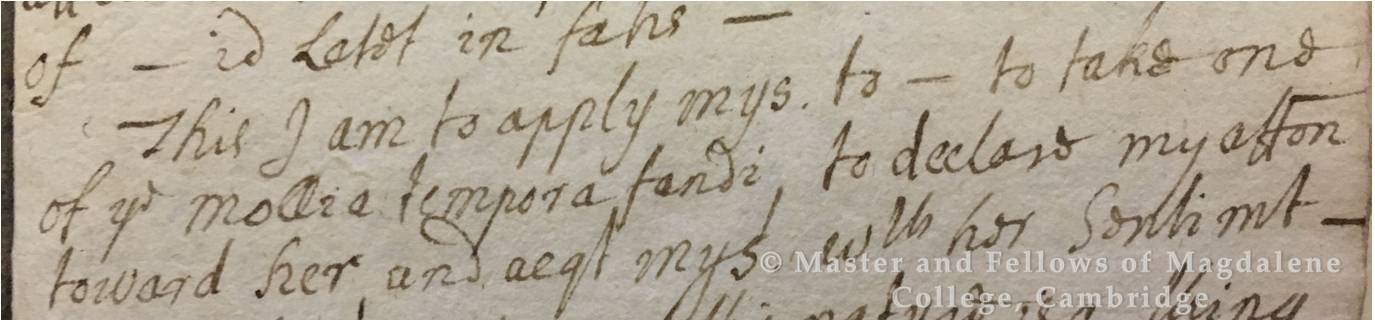 of — id Latet in fans —
This I am to apply mys. to — to take one
of ye mollia tempora fandi, to declare my affton
toward her and acqt mys. wth her Sentimt —
© Master and Fellows of Magdalene
College, Cambridge
thing